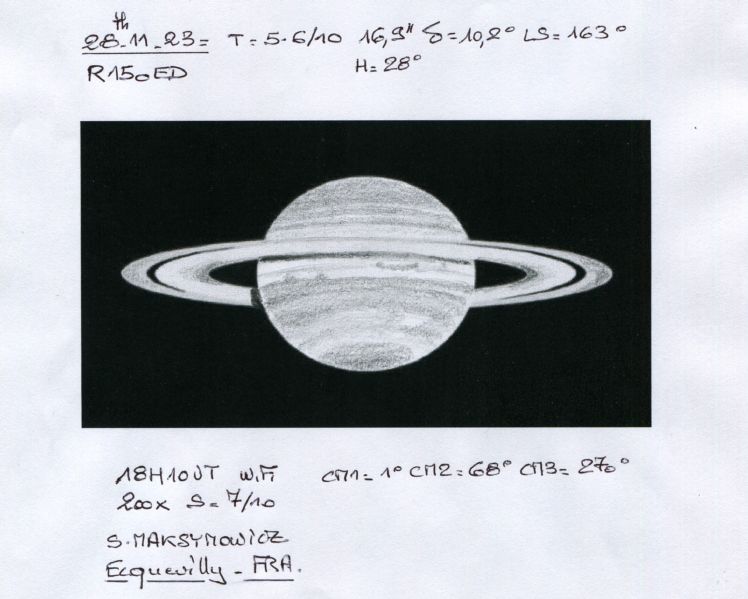 28th-11-23= T=5-6/10 16,9" δ=10,2° LS=163°
R150ED H=28°
18H10UT W.Fi CM1=1° CM2=68° CM3=270°
200x S=7/10
S.MAKSYMOWICZ
Ecquevilly - FRA.